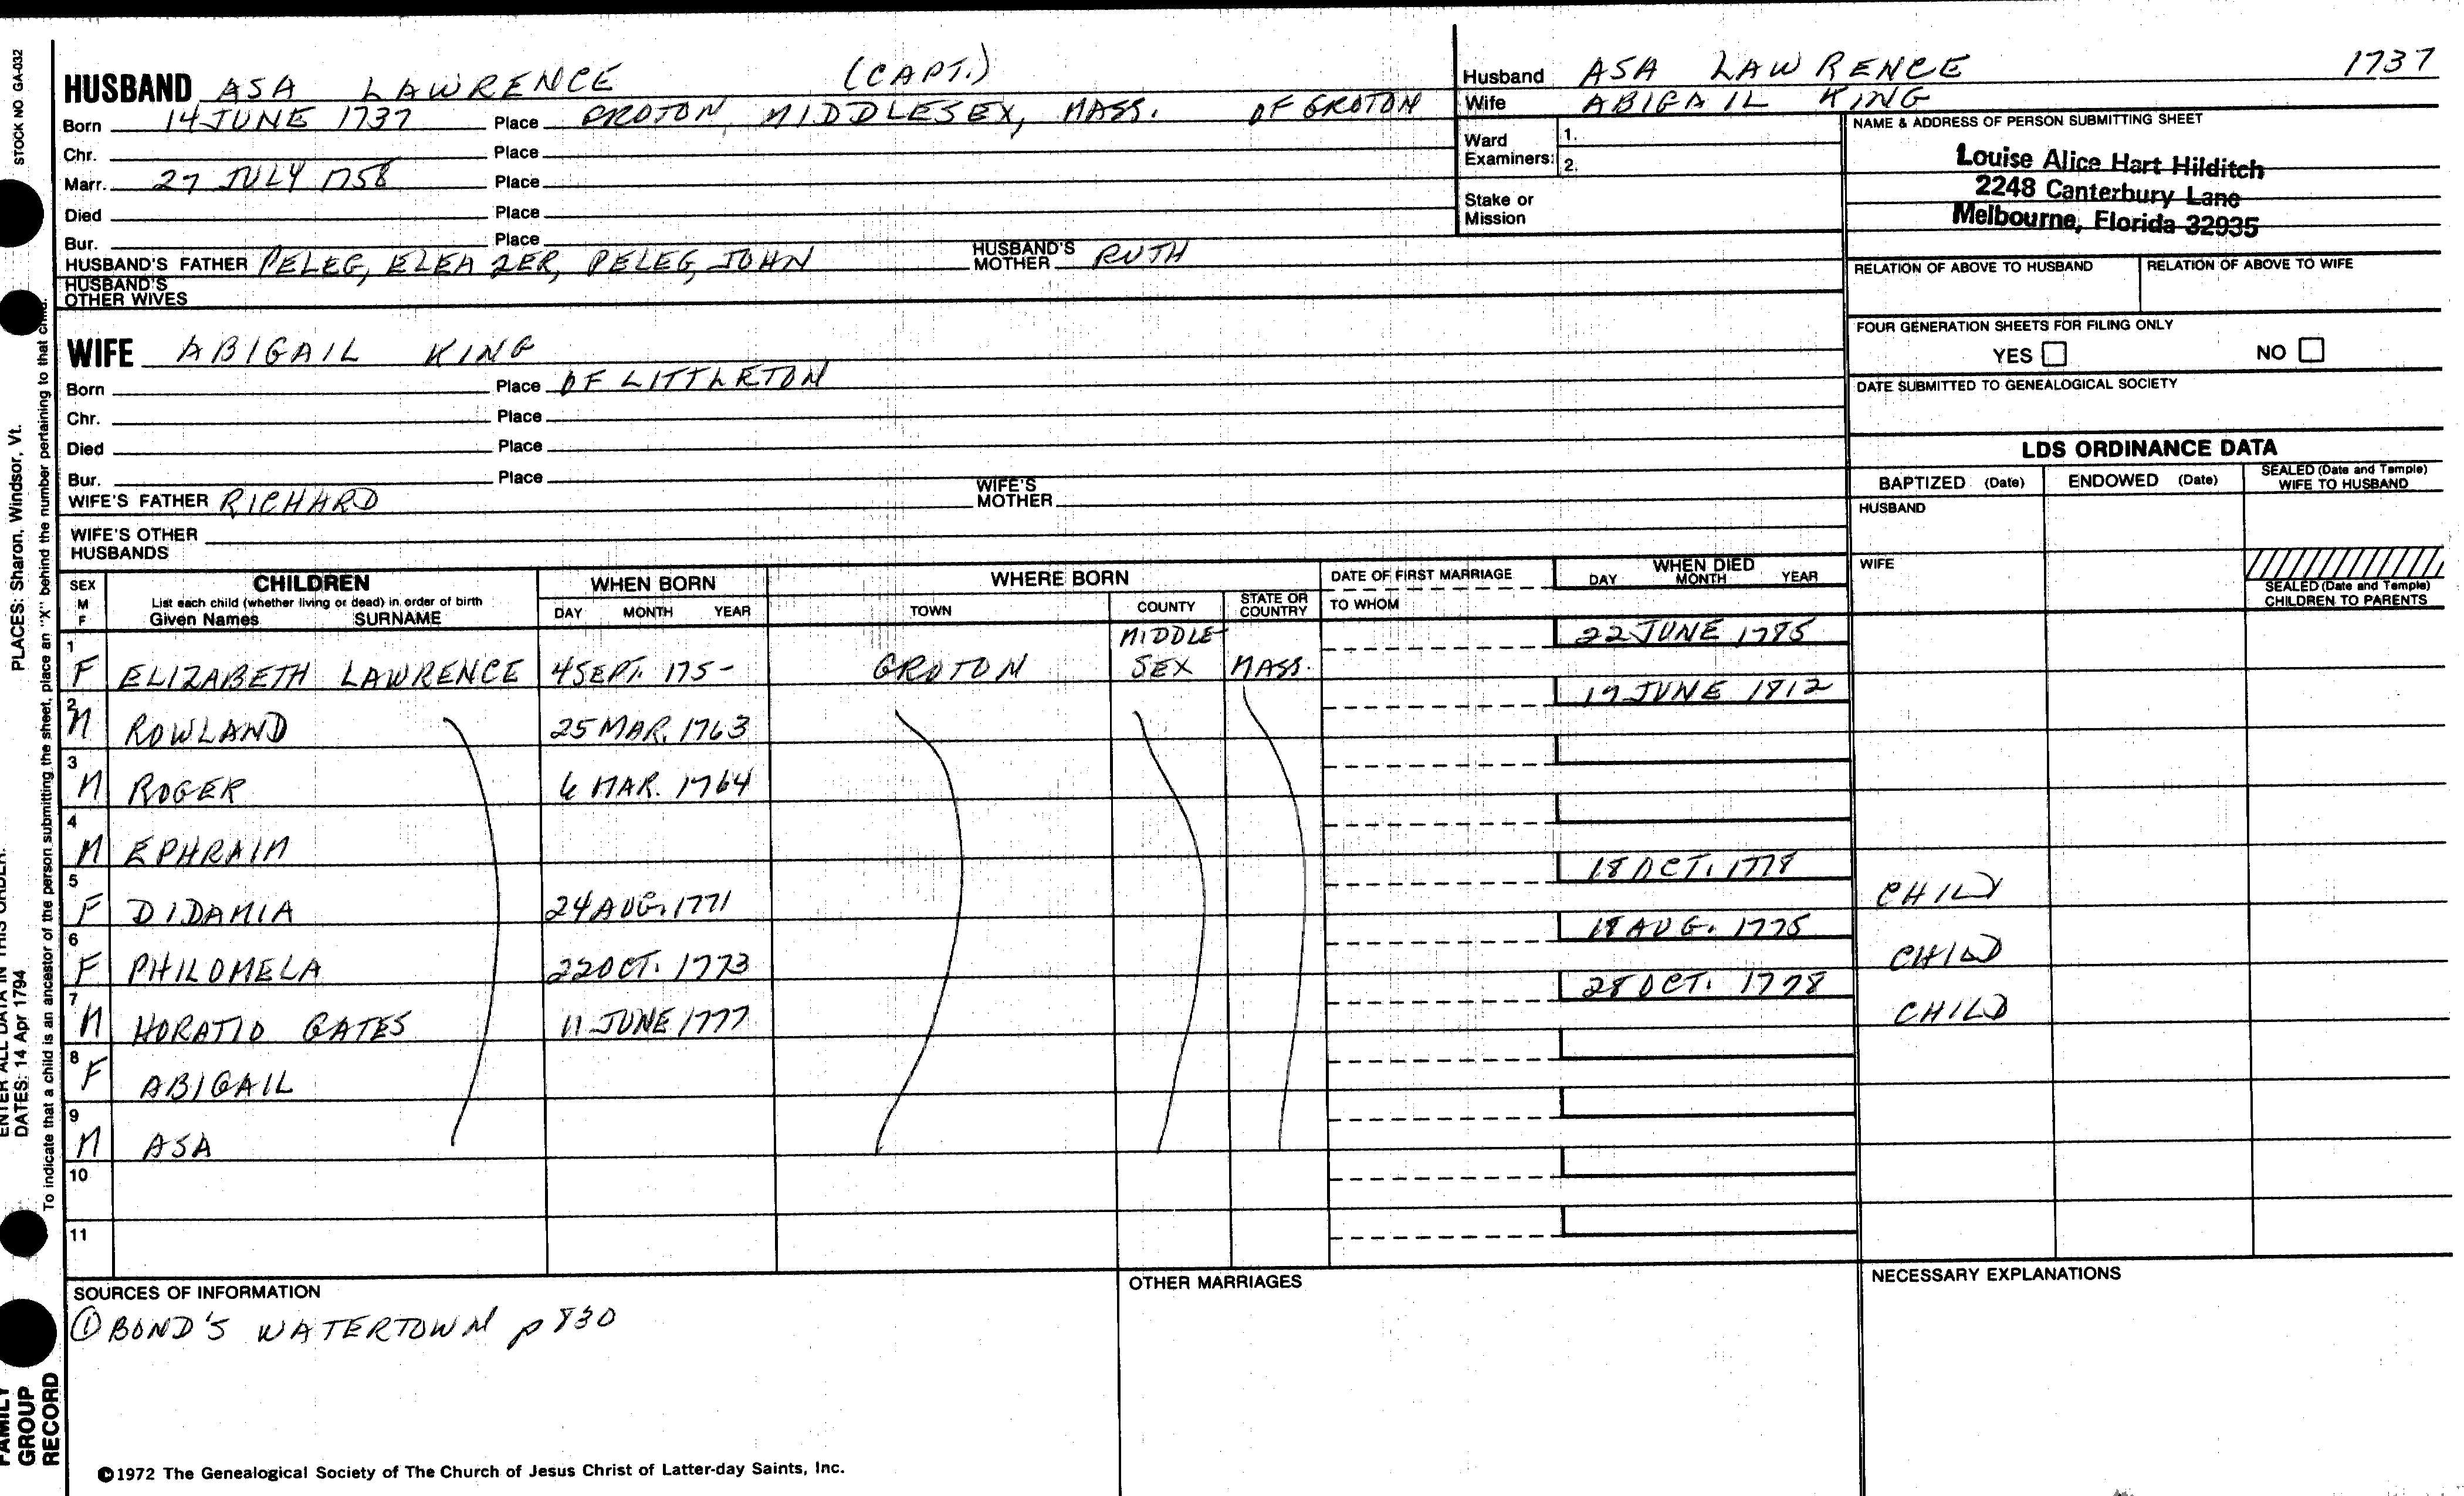 STOCK NO GA-032
HUSBAND ASA LAWRENCE (CAPT.)
Born 14 JUNE 1737 Place GROTON, MIDDLESEX, MASS. OF GROTON
Chr. Place
Marr. 27 JULY 1758 Place
Died Place
Bur. Place
HUSBAND'S FATHER PELEG, ELEAZER, PELEG, JOHN HUSBAND'S MOTHER RUTH
HUSBAND'S OTHER WIVES
Husband ASA LAWRENCE 1737
Wife ABIGAIL KING
Ward Examiners: 1.
2.
Stake or Mission
NAME & ADDRESS OF PERSON SUBMITTING SHEET
Louise Alice Hart Hilditch
2248 Canterbury Lane
Melbourne, Florida 32935
RELATION OF ABOVE TO HUSBAND RELATION OF ABOVE TO WIFE
FOUR GENERATION SHEETS FOR FILING ONLY
YES NO
DATE SUBMITTED TO GENEALOGICAL SOCIETY
WIFE ABIGAIL KING
Born Place OF LITTLETON
Chr. Place
Died Place
Bur. Place
WIFE'S FATHER RICHARD WIFE'S MOTHER
WIFE'S OTHER HUSBANDS
LDS ORDINANCE DATA
BAPTIZED (Date) ENDOWED (Date) SEALED (Date and Temple) WIFE TO HUSBAND
HUSBAND
WIFE
SEALED (Date and Temple) CHILDREN TO PARENTS
SEX M F
CHILDREN
List each child (whether living or dead) in order of birth
Given Names SURNAME
WHEN BORN
DAY MONTH YEAR
WHERE BORN
TOWN COUNTY STATE OR COUNTRY
DATE OF FIRST MARRIAGE
TO WHOM
WHEN DIED
DAY MONTH YEAR
1 F ELIZABETH LAWRENCE 4 SEPT. 175- GROTON MIDDLE-SEX MASS. 22 JUNE 1785
2 M ROWLAND 25 MAR. 1763 JUNE 1812
3 M ROGER 6 MAR. 1764
4 M EPHRAIM
5 F DIDAMIA 24 AUG. 1771 18 OCT. 1778 CHILD
6 F PHILOMELA 22 OCT. 1773 18 AUG. 1775 CHILD
7 M HORATIO GATES 11 JUNE 1777 28 OCT. 1778 CHILD
8 F ABIGAIL
9 M ASA
10
11
SOURCES OF INFORMATION
① BOND'S WATERTOWN p 830
OTHER MARRIAGES
NECESSARY EXPLANATIONS
©1972 The Genealogical Society of The Church of Jesus Christ of Latter-day Saints, Inc.
FAMILY GROUP RECORD
ENTER ALL DATA IN THIS ORDER:
DATES: 14 Apr 1794
PLACES: Sharon, Windsor, Vt.
To indicate that a child is an ancestor of the person submitting the sheet, place an "X" behind the number pertaining to that child.